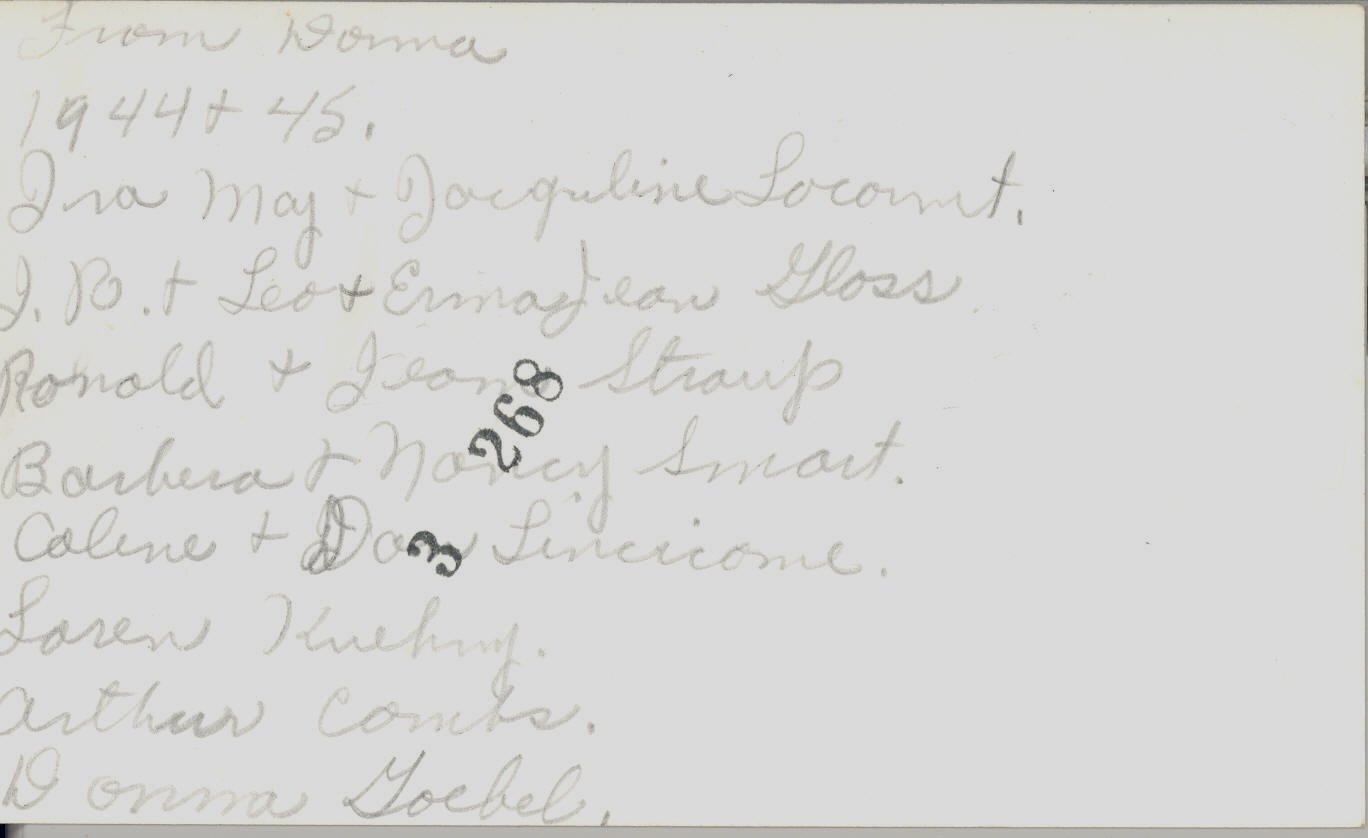 From Donna
1944 + 45.
Ira May + Jacquline Locomit.
J. R. + Leo + Erma Jean Gloss
Ronald + Jeane Stroup
Barbera + Nancy Smart.
Colene + Don Lincicome.
Loren Kuehny.
Arthur Combs.
Donna Goebel.
3 268